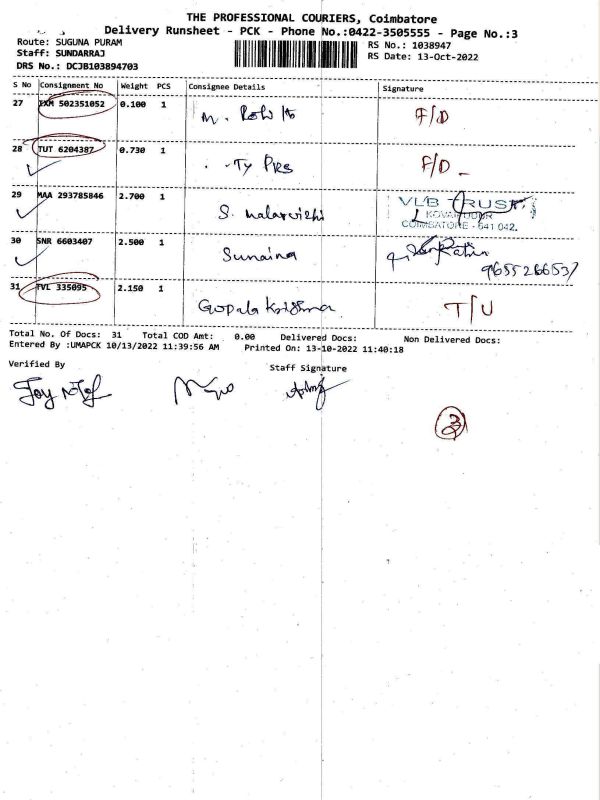 THE PROFESSIONAL COURIERS, Coimbatore
Delivery Runsheet - PCK - Phone No.:0422-3505555 - Page No.:3
Route: SUGUNA PURAM
RS No.: 1038947
Staff: SUNDARRAJ
RS Date: 13-Oct-2022
DRS No.: DCJB103894703
S No Consignment No Weight PCS Consignee Details Signature
27 502351052 0.100 1 F/D
28 TUT 6204387 0.730 1 F/D
29 MAA 293785846 2.700 1 S. Malarvizhi VLB TRUST
COIMBATORE - 641 042.
30 SNR 6603407 2.500 1 Sunaina
31 TVL 335095 2.150 1 Gopala Krishna T/U
Total No. Of Docs: 31 Total COD Amt: 0.00 Delivered Docs: Non Delivered Docs:
Entered By :UMAPCK 10/13/2022 11:39:56 AM Printed On: 13-10-2022 11:40:18
Verified By
Staff Signature
3